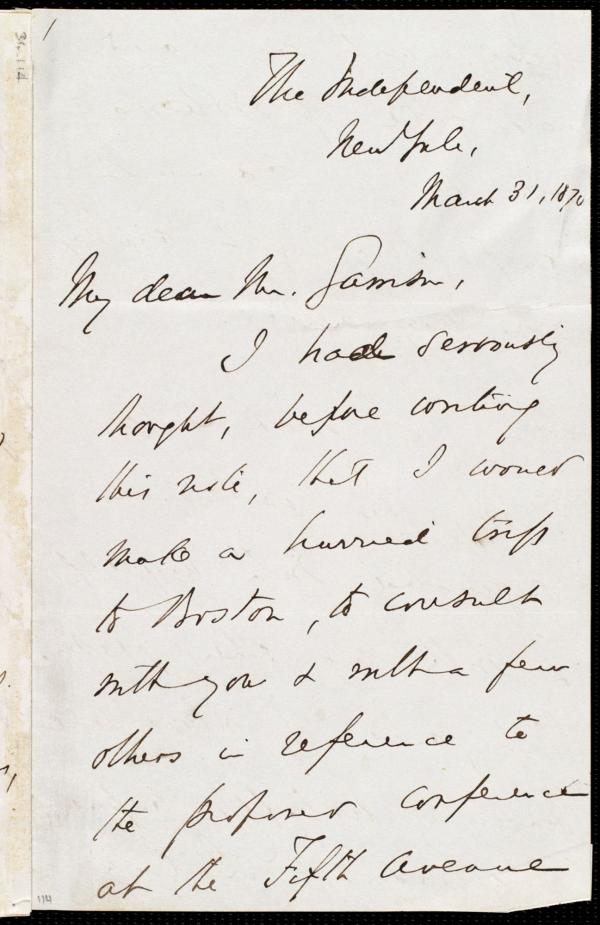 1
The Independent,
New York,
March 31, 1870
My dear Mr. Garrison,
I had seriously
thought, before writing
this note, that I would
make a hurried trip
to Boston, to consult
with you & with a few
others in reference to
the proposed conference
at the Fifth Avenue
114